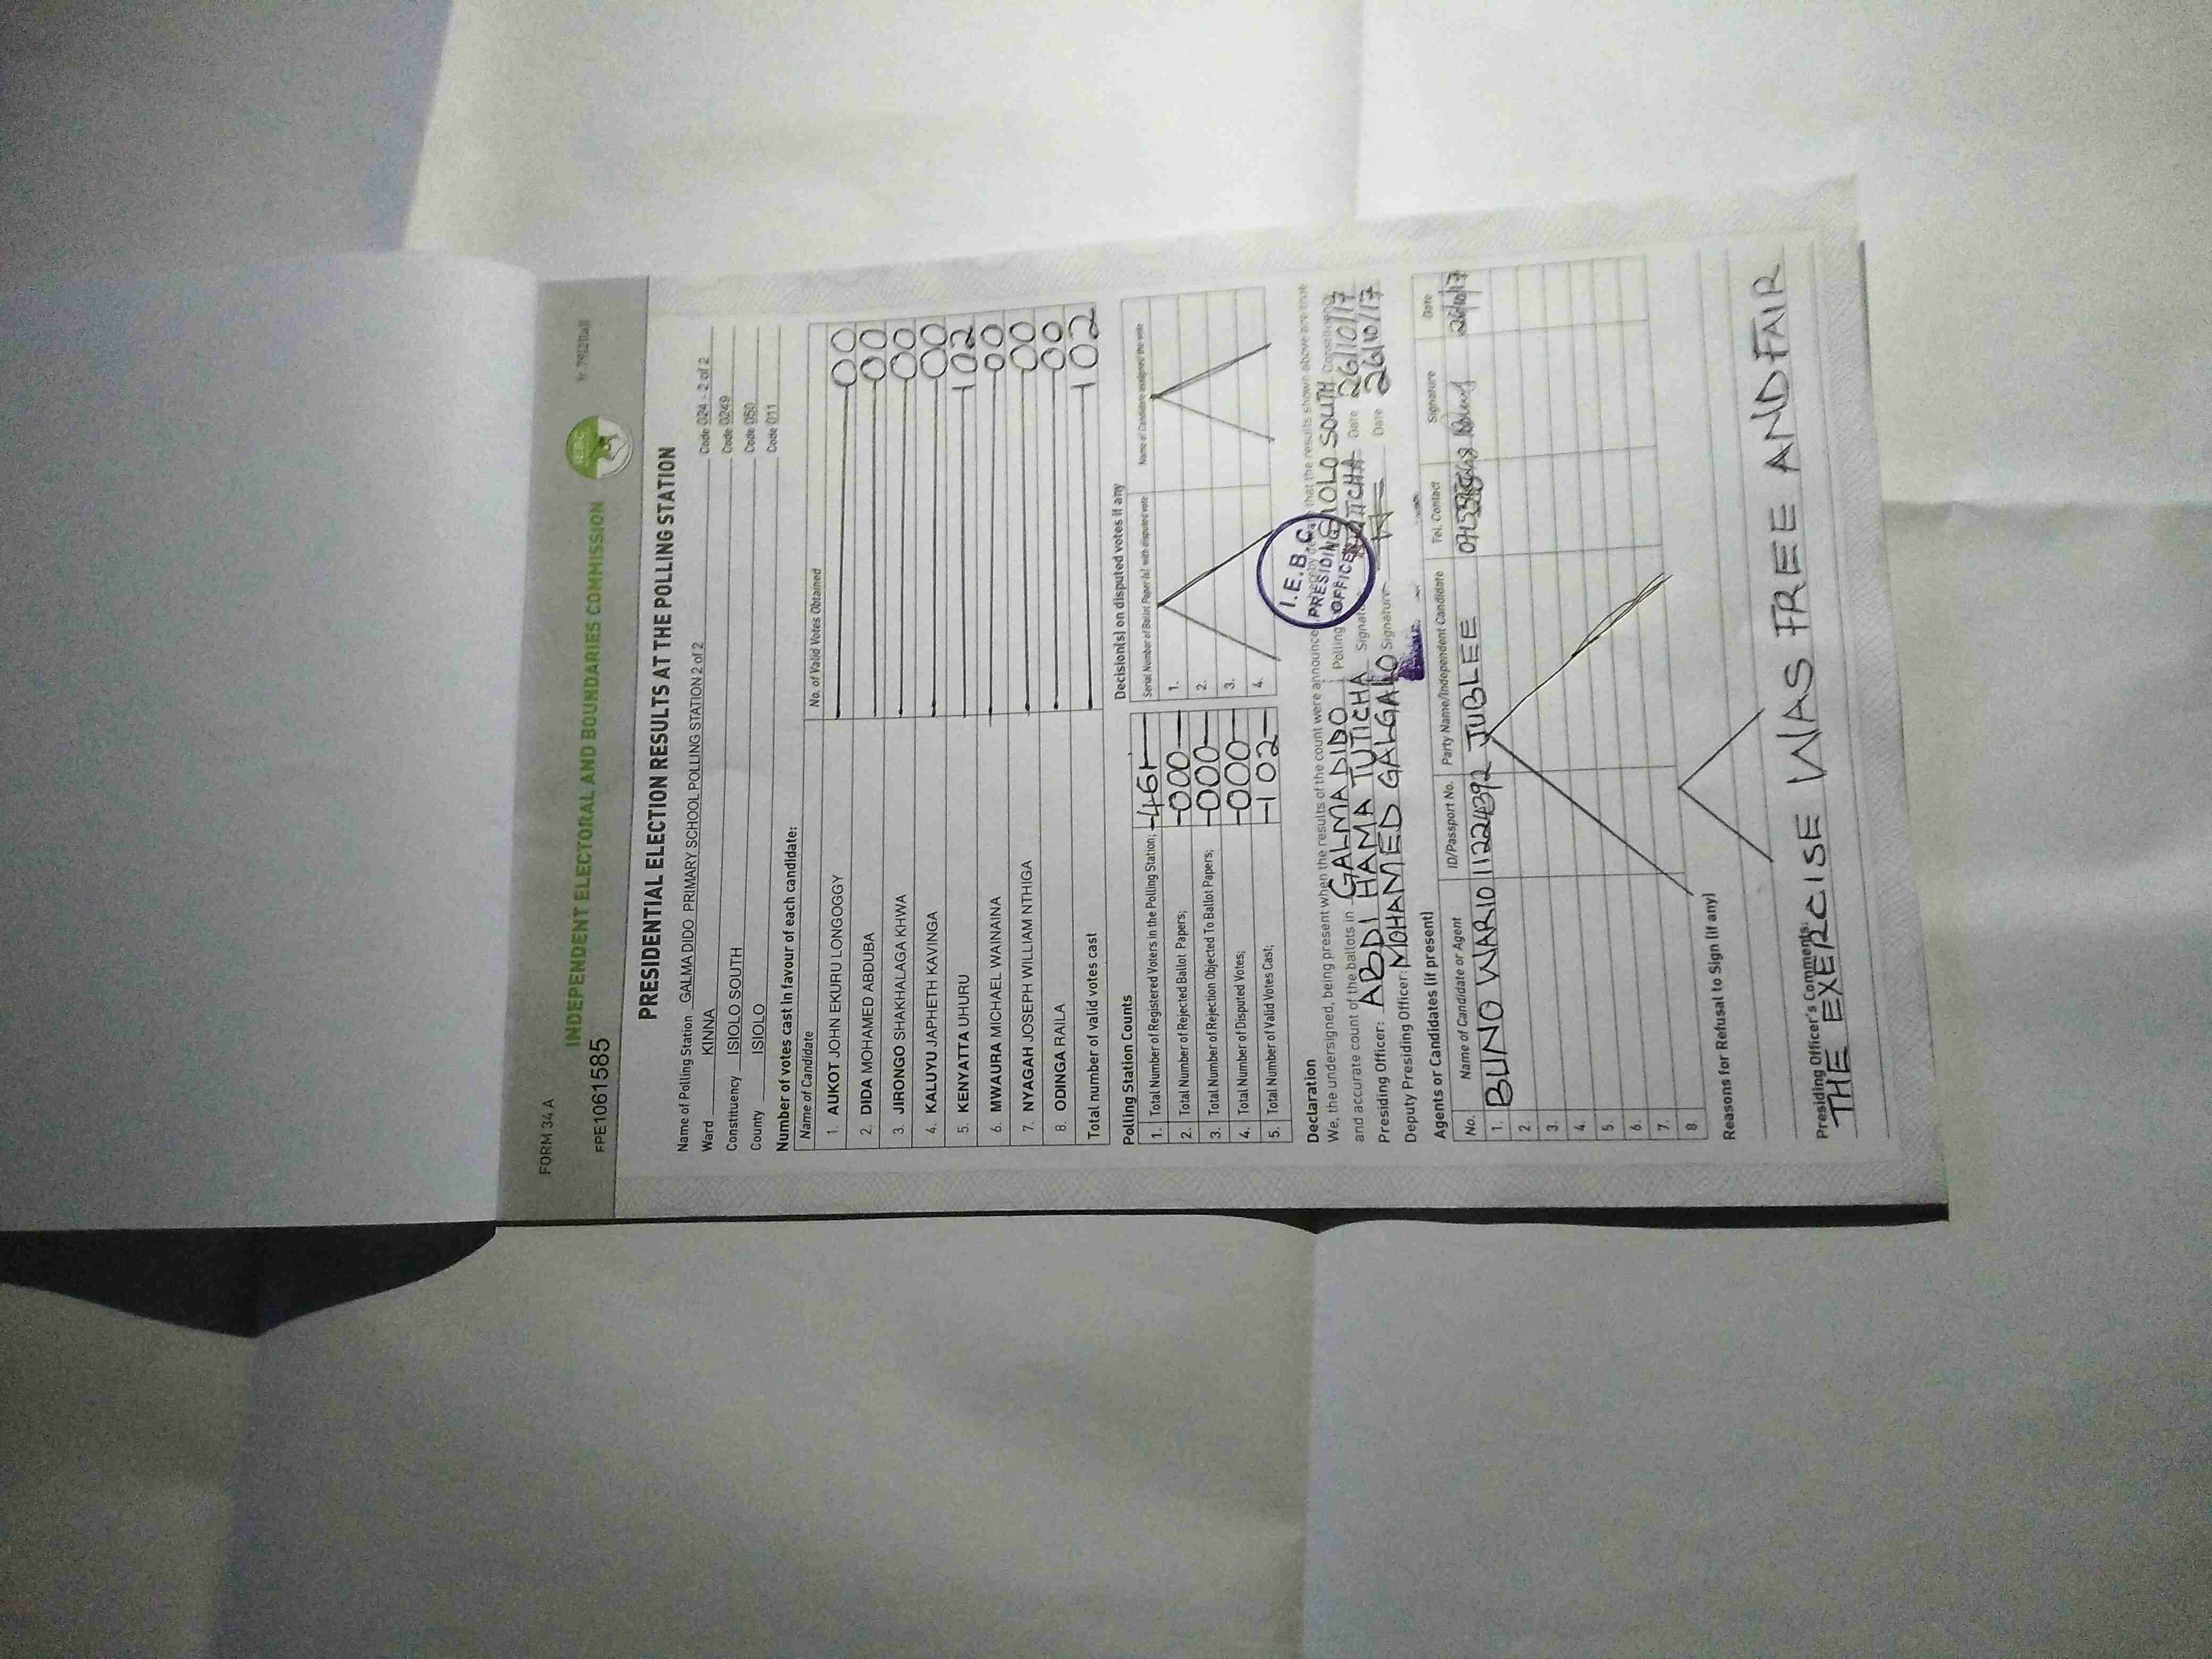 FORM 34 A
INDEPENDENT ELECTORAL AND BOUNDARIES COMMISSION
FPE1061585
PRESIDENTIAL ELECTION RESULTS AT THE POLLING STATION
Name of Polling Station GALMA DIDO PRIMARY SCHOOL POLLING STATION 2 of 2 Code 024 - 2 of 2
Ward KINNA Code 0249
Constituency ISIOLO SOUTH Code 050
County ISIOLO Code 011
Number of votes cast in favour of each candidate:
Name of Candidate No. of Valid Votes Obtained
1. AUKOT JOHN EKURU LONGOGGY 00
2. DIDA MOHAMED ABDUBA 00
3. JIRONGO SHAKHALAGA KHWA 00
4. KALUYU JAPHETH KAVINGA 00
5. KENYATTA UHURU 102
6. MWAURA MICHAEL WAINAINA 00
7. NYAGAH JOSEPH WILLIAM NTHIGA 00
8. ODINGA RAILA 00
Total number of valid votes cast 102
Polling Station Counts
1. Total Number of Registered Voters in the Polling Station; -461-
2. Total Number of Rejected Ballot Papers; -000-
3. Total Number of Rejection Objected To Ballot Papers; -000-
4. Total Number of Disputed Votes; -000-
5. Total Number of Valid Votes Cast; -102-
Decision(s) on disputed votes if any
Serial Number of Ballot Paper(s) with disputed vote Name of Candidate assigned the vote
1.
2.
3.
4.
Declaration
We, the undersigned, being present when the results of the count were announced, hereby that the results shown above are true
and accurate count of the ballots in GALMA DIDO Polling ISIOLO SOUTH Constituency
Presiding Officer: ABDI HAMA TUTICHA Signature Date 26/10/17
Deputy Presiding Officer: MOHAMED GALGALO Signature Date 26/10/17
I.E.B.C.
PRESIDING
OFFICER
Agents or Candidates (if present)
No. Name of Candidate or Agent ID/Passport No. Party Name/Independent Candidate Tel. Contact Signature Date
1. BUNO WARIO 11224392 JUBLEE 26/10/17
2.
3.
4.
5.
6.
7.
8.
Reasons for Refusal to Sign (if any)
Presiding Officer's Comments:
THE EXERCISE WAS FREE AND FAIR